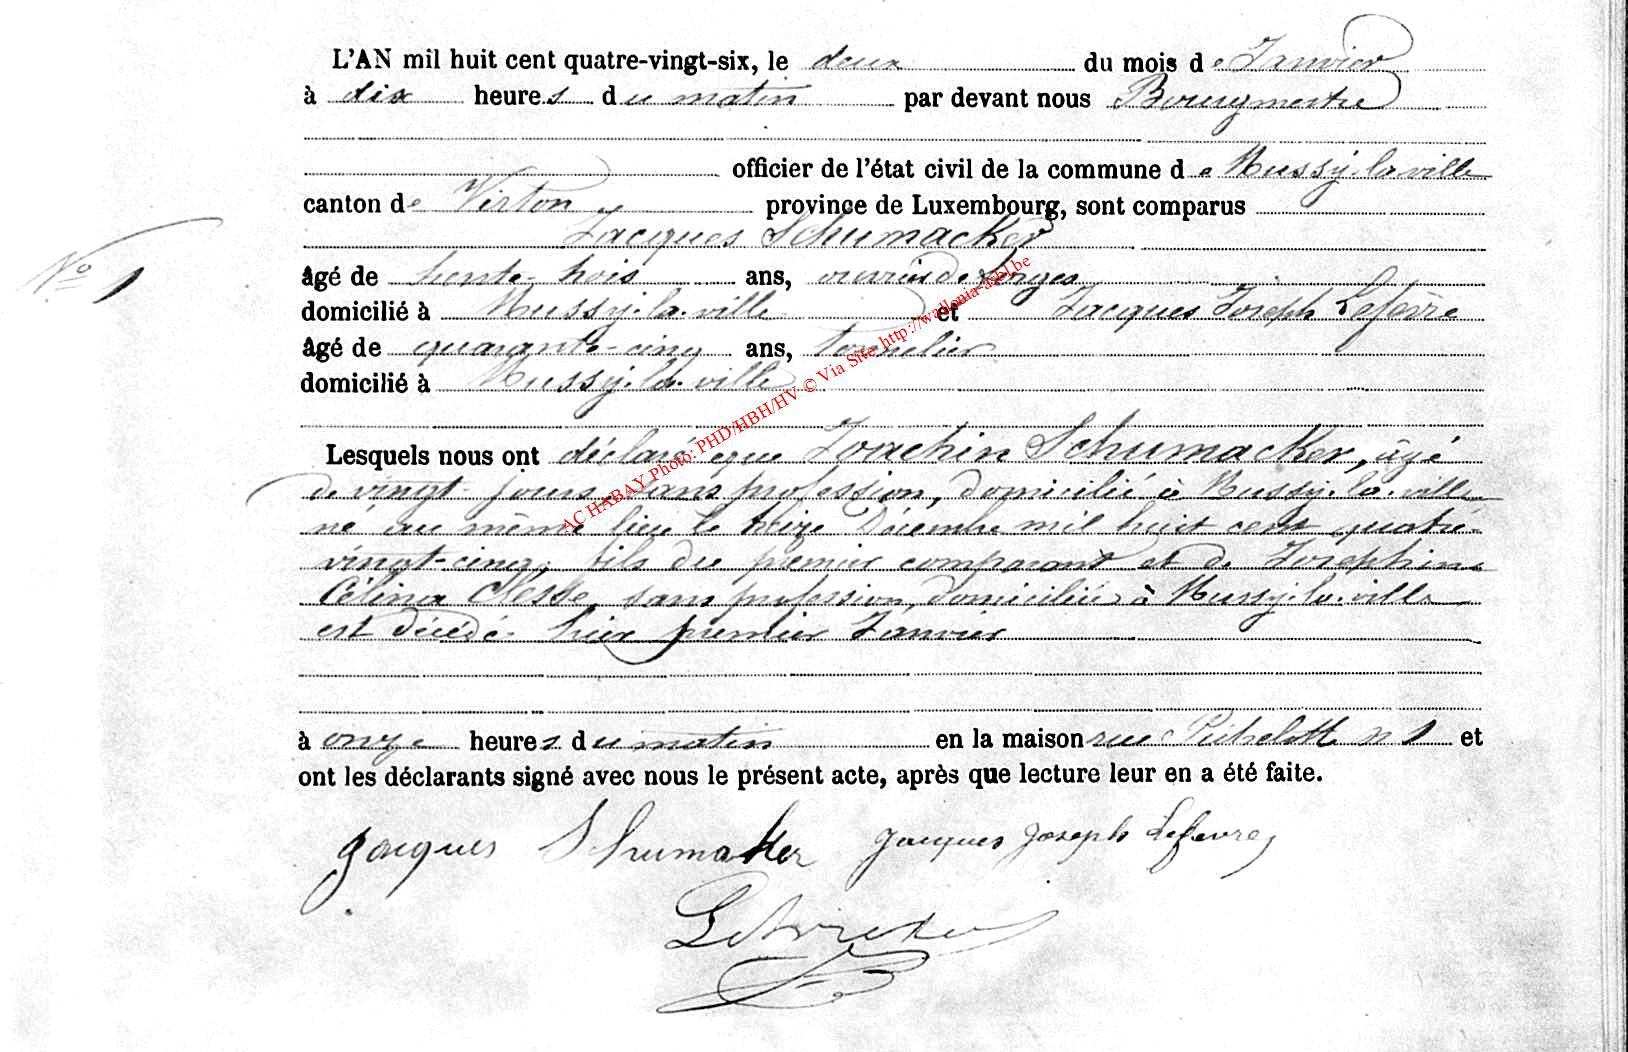 L'AN mil huit cent quatre-vingt-six, le deux du mois de Janvier
à dix heures du matin par devant nous Bourgmestre
officier de l'état civil de la commune de Mussy-la-ville
canton de Virton province de Luxembourg, sont comparus
Jacques Schumacker
N° 1
âgé de trente-trois ans, ouvrier de forges
domicilié à Mussy-la-ville et Jacques Joseph Lefèvre
âgé de quarante-cinq ans, tonnelier
domicilié à Mussy-la-ville
Lesquels nous ont déclaré que Joachin Schumacker, âgé
de vingt jours, sans profession, domicilié à Mussy-la-ville
né au même lieu le treize Décembre mil huit cent quatre-
vingt-cinq, fils du premier comparant et de Joséphine
Célina Clesse, sans profession, domiciliée à Mussy-la-ville
est décédé hier premier Janvier
à onze heures du matin en la maison rue n 1 et
ont les déclarants signé avec nous le présent acte, après que lecture leur en a été faite.
Jacques Schumaker Jacques Joseph Lefevre
AC HABAY Photo: PHD/HBH/HV © Via Site http://wallonia-asbl.be